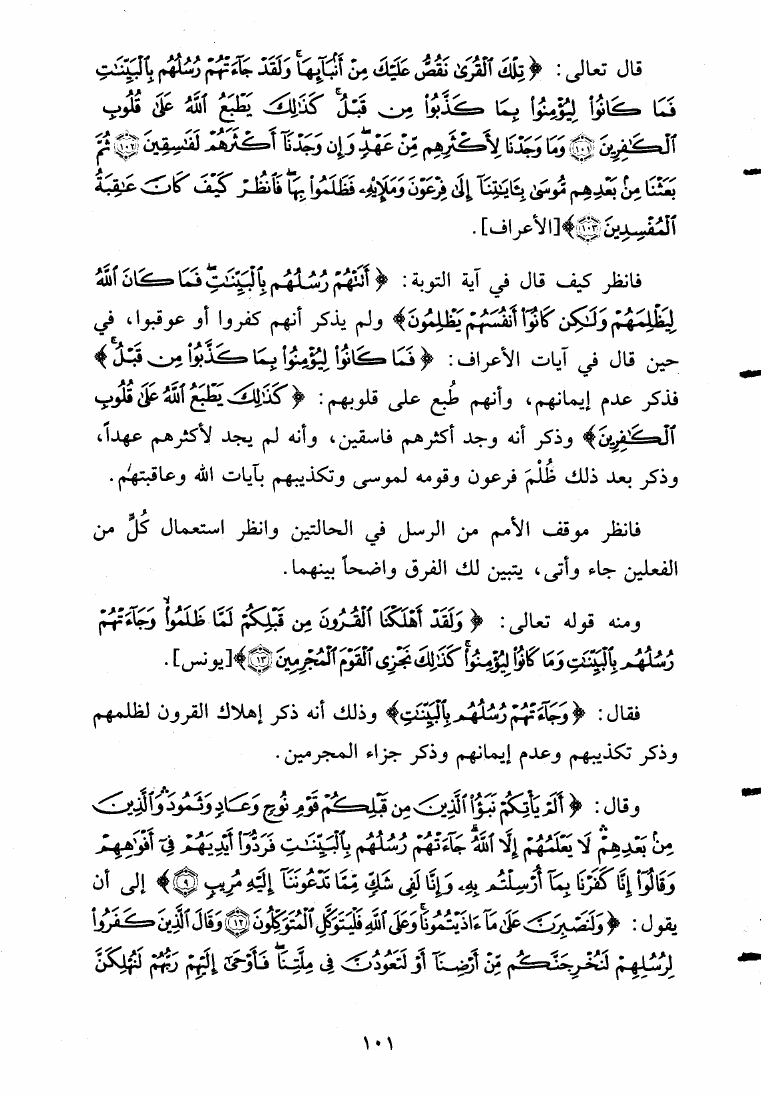 قال تعالى : ﴿ تِلْكَ ٱلْقُرَىٰ نَقُصُّ عَلَيْكَ مِنْ أَنۢبَآئِهَاۚ وَلَقَدْ جَآءَتْهُمْ رُسُلُهُم بِٱلْبَيِّنَٰتِ
فَمَا كَانُوا۟ لِيُؤْمِنُوا۟ بِمَا كَذَّبُوا۟ مِن قَبْلُۚ كَذَٰلِكَ يَطْبَعُ ٱللَّهُ عَلَىٰ قُلُوبِ
ٱلْكَٰفِرِينَ ﴿١٠١﴾ وَمَا وَجَدْنَا لِأَكْثَرِهِم مِّنْ عَهْدٍۖ وَإِن وَجَدْنَآ أَكْثَرَهُمْ لَفَٰسِقِينَ ﴿١٠٢﴾ ثُمَّ
بَعَثْنَا مِنۢ بَعْدِهِم مُّوسَىٰ بِـَٔايَٰتِنَآ إِلَىٰ فِرْعَوْنَ وَمَلَإِي۟هِۦ فَظَلَمُوا۟ بِهَاۖ فَٱنظُرْ كَيْفَ كَانَ عَٰقِبَةُ
ٱلْمُفْسِدِينَ ﴿١٠٣﴾ ﴾ [الأعراف] .
فانظر كيف قال في آية التوبة : ﴿ أَتَتْهُمْ رُسُلُهُم بِٱلْبَيِّنَٰتِۖ فَمَا كَانَ ٱللَّهُ
لِيَظْلِمَهُمْ وَلَٰكِن كَانُوٓا۟ أَنفُسَهُمْ يَظْلِمُونَ ﴾ ولم يذكر أنهم كفروا أو عوقبوا ، في
حين قال في آيات الأعراف : ﴿ فَمَا كَانُوا۟ لِيُؤْمِنُوا۟ بِمَا كَذَّبُوا۟ مِن قَبْلُۚ ﴾
فذكر عدم إيمانهم ، وأنهم طُبع على قلوبهم : ﴿ كَذَٰلِكَ يَطْبَعُ ٱللَّهُ عَلَىٰ قُلُوبِ
ٱلْكَٰفِرِينَ ﴾ وذكر أنه وجد أكثرهم فاسقين ، وأنه لم يجد لأكثرهم عهداً ،
وذكر بعد ذلك ظُلْمَ فرعون وقومه لموسى وتكذيبهم بآيات الله وعاقبتهم .
فانظر موقف الأمم من الرسل في الحالتين وانظر استعمال كُلٍّ من
الفعلين جاء وأتى ، يتبين لك الفرق واضحاً بينهما .
ومنه قوله تعالى : ﴿ وَلَقَدْ أَهْلَكْنَا ٱلْقُرُونَ مِن قَبْلِكُمْ لَمَّا ظَلَمُوا۟ۙ وَجَآءَتْهُمْ
رُسُلُهُم بِٱلْبَيِّنَٰتِ وَمَا كَانُوا۟ لِيُؤْمِنُوا۟ۚ كَذَٰلِكَ نَجْزِى ٱلْقَوْمَ ٱلْمُجْرِمِينَ ﴿١٣﴾ ﴾ [يونس] .
فقال : ﴿ وَجَآءَتْهُمْ رُسُلُهُم بِٱلْبَيِّنَٰتِ ﴾ وذلك أنه ذكر إهلاك القرون لظلمهم
وذكر تكذيبهم وعدم إيمانهم وذكر جزاء المجرمين .
وقال : ﴿ أَلَمْ يَأْتِكُمْ نَبَؤُا۟ ٱلَّذِينَ مِن قَبْلِكُمْ قَوْمِ نُوحٍ وَعَادٍ وَثَمُودَۛ وَٱلَّذِينَ
مِنۢ بَعْدِهِمْۛ لَا يَعْلَمُهُمْ إِلَّا ٱللَّهُۚ جَآءَتْهُمْ رُسُلُهُم بِٱلْبَيِّنَٰتِ فَرَدُّوٓا۟ أَيْدِيَهُمْ فِىٓ أَفْوَٰهِهِمْ
وَقَالُوٓا۟ إِنَّا كَفَرْنَا بِمَآ أُرْسِلْتُم بِهِۦ وَإِنَّا لَفِى شَكٍّ مِّمَّا تَدْعُونَنَآ إِلَيْهِ مُرِيبٍ ﴿٩﴾ ﴾ إلى أن
يقول : ﴿ وَلَنَصْبِرَنَّ عَلَىٰ مَآ ءَاذَيْتُمُونَاۚ وَعَلَى ٱللَّهِ فَلْيَتَوَكَّلِ ٱلْمُتَوَكِّلُونَ ﴿١٢﴾ وَقَالَ ٱلَّذِينَ كَفَرُوا۟
لِرُسُلِهِمْ لَنُخْرِجَنَّكُم مِّنْ أَرْضِنَآ أَوْ لَتَعُودُنَّ فِى مِلَّتِنَاۖ فَأَوْحَىٰٓ إِلَيْهِمْ رَبُّهُمْ لَنُهْلِكَنَّ
١٠١